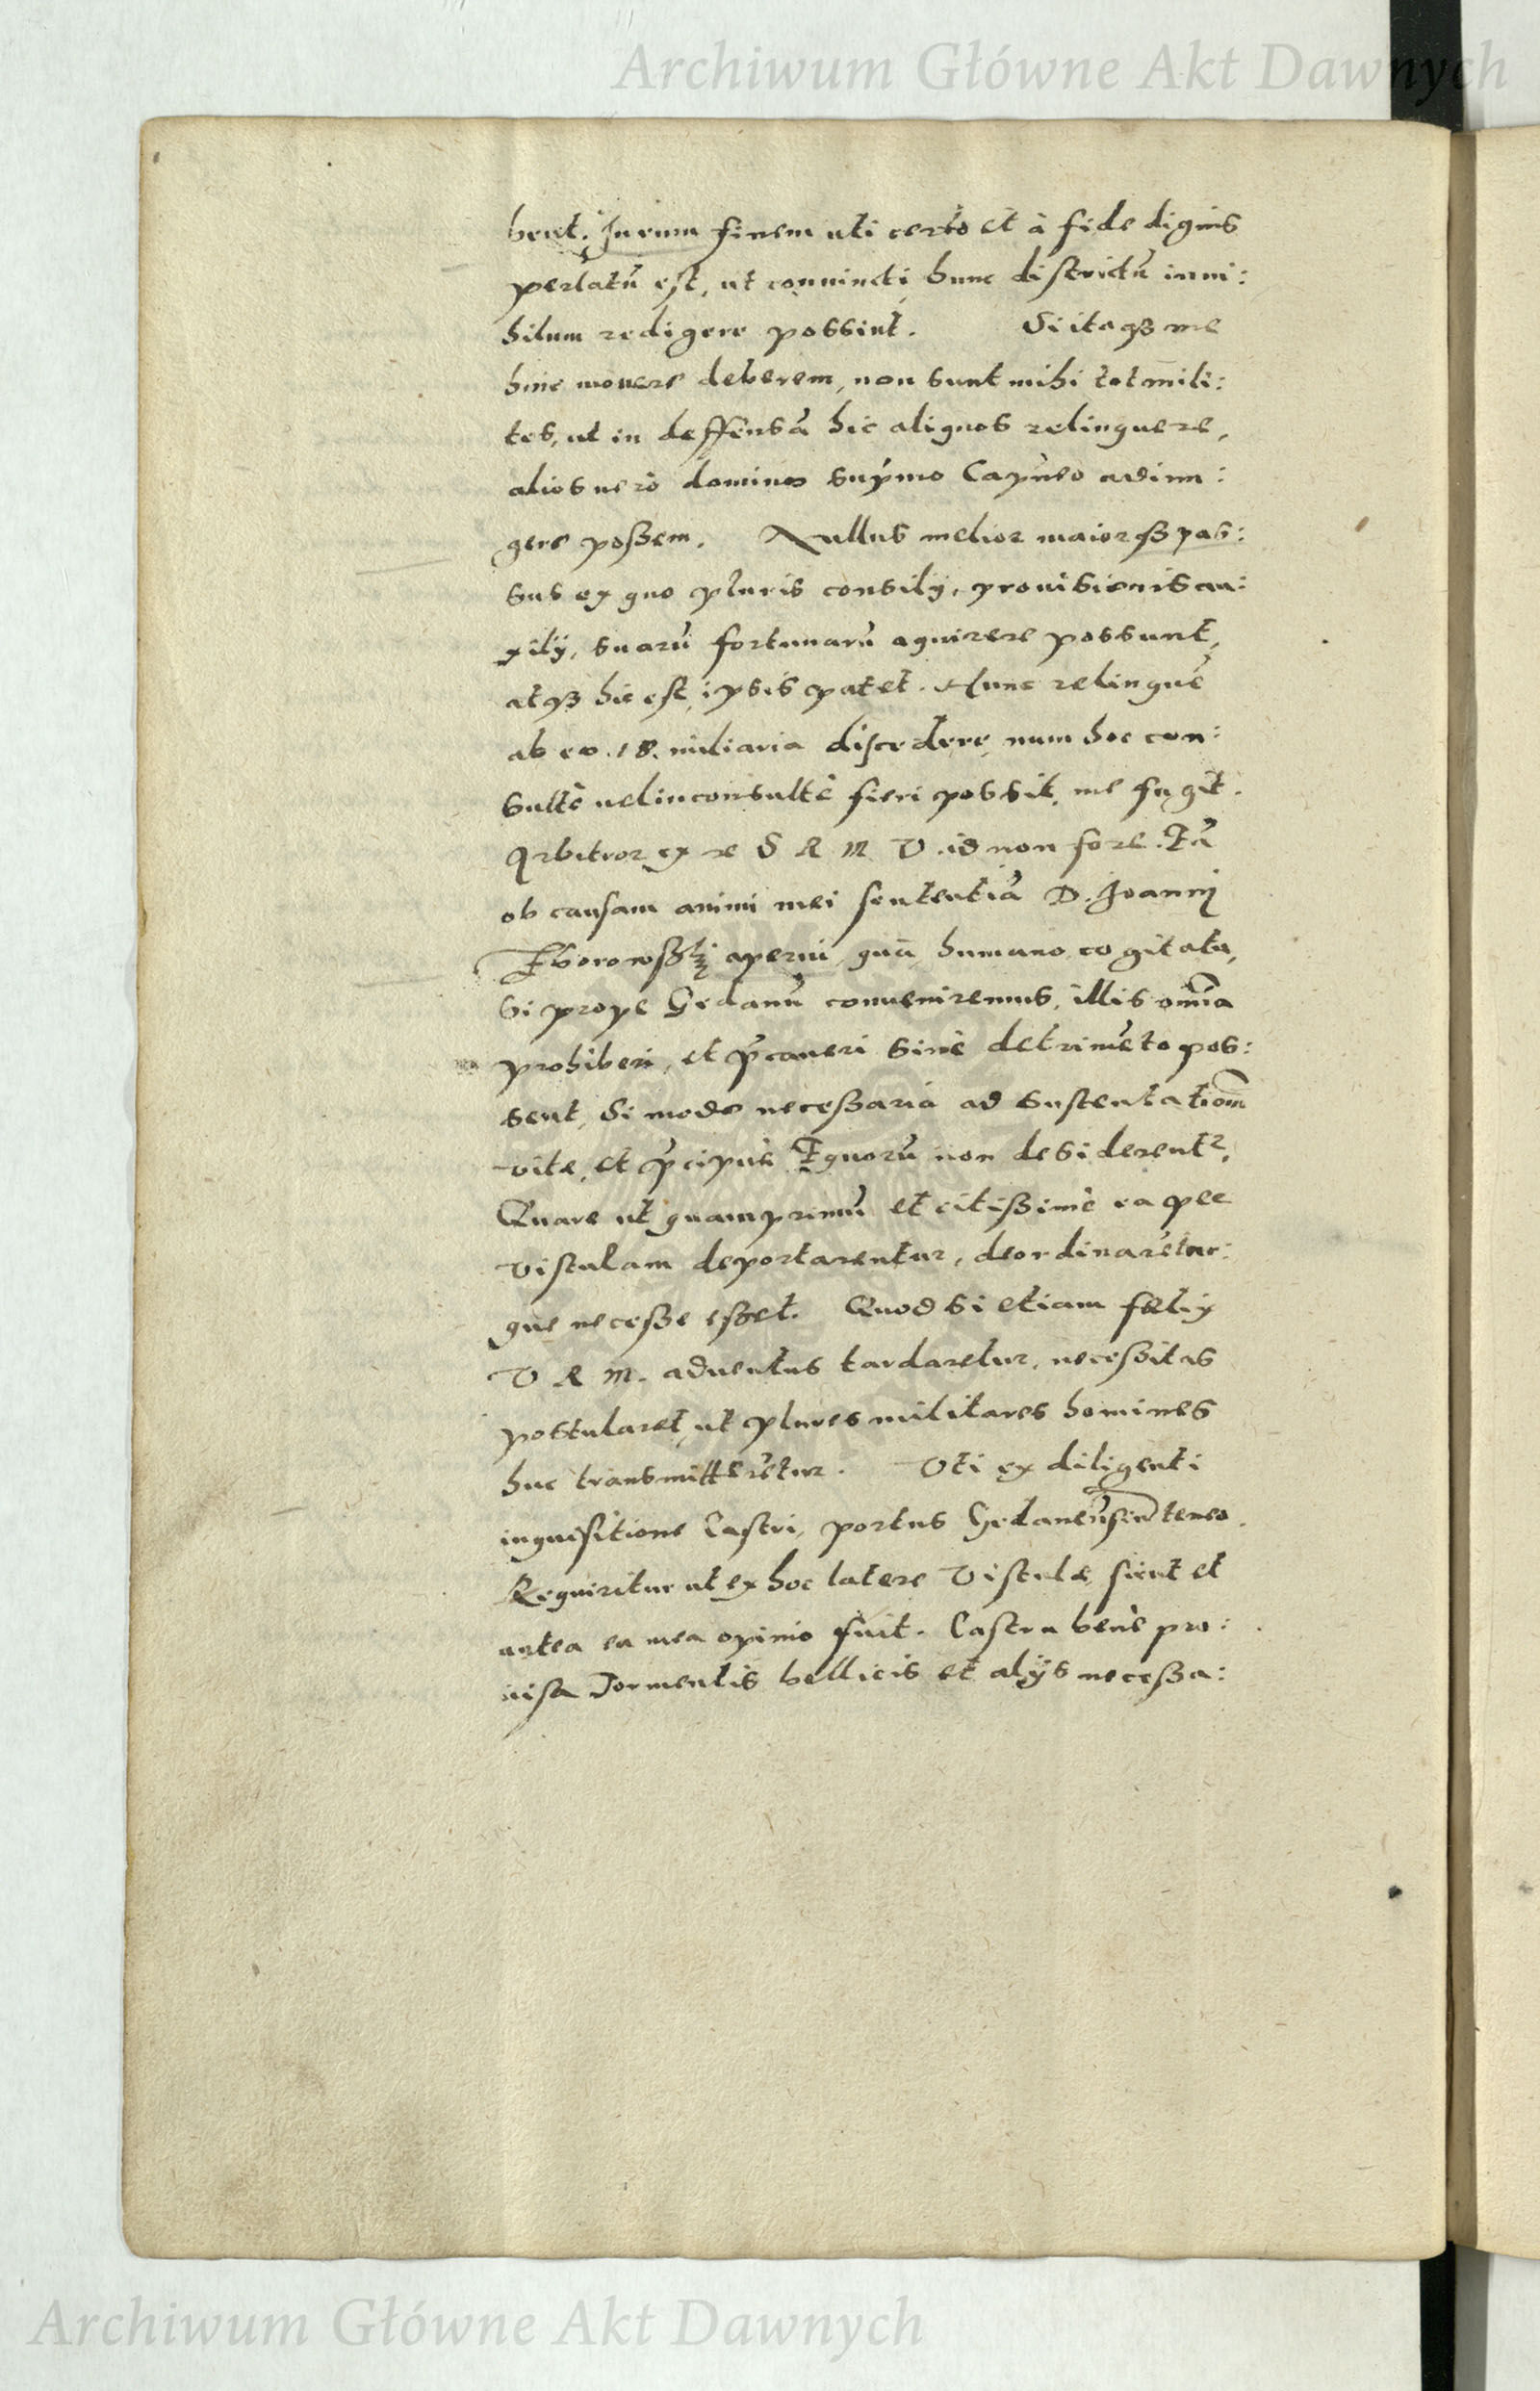 Archiwum Główne Akt Dawnych
bent. In eum finem uti certo et à fide dignis
perlatū est, ut conuincti hunc districtū inni:
hilum redigere possint. Si itaqꝫ me
hinc mouere deberem, non sunt mihi tot mili:
tes, ut in deffensā hic aliquos relinquere,
alios uerò domino supmo Capneo adiun:
gere poßem. Nullus melior maiorqꝫ pas:
sus ex quo pluris consilij, prouisionis au:
xilij, suarū fortunarū aquirere possunt,
atqꝫ hic est, ipsis patet. Hunc relinquē
ab eo .18. miliaria discedere, num hoc con:
sultè uel inconsultè fieri possit, me fugit.
Arbitror ex re S R M V. id non fore. Eā
ob causam animi mei sententiā D. Joanni
Sborowßkj aperui, quā humano cogitatu,
si prope Gedanū conueniremus, illis om̄ia
prohiberi, et p̄caueri sine detrimēto pos:
sent, Si modo neceßaria ad sustentatiom̄
vitæ, et p̄cipuè Equorū non desiderentr.
Quare ut quamprimū et citißimè ea per
Vistulam deportarentur, deordinarētur:
que neceße eßet. Quod si etiam felix
V R M. aduentus tardaretur, neceßitas
postularet, ut plures militares homines
huc transmitterētur. Vti ex diligenti
inquisitione Castri, portus Gedanēnsiū teneo.
Requiritur ut ex hoc latere Vistulæ, sicut et
antea ea mea opinio fuit. Castra benè pro:
uisa Tormentis bellicis et alijs neceßa:
Archiwum Główne Akt Dawnych